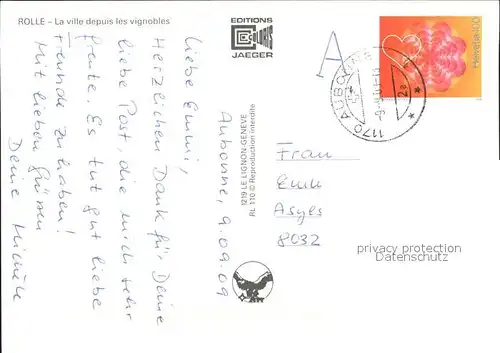 ROLLE – La ville depuis les vignobles
EDITIONS
JAEGER
A
Helvetia 100
1170 AUBONNE
Aubonne, 9.09.09
Liebe Emmi,
Herzlichen Dank für Deine
liebe Post, die mich sehr
freute. Es tut gut liebe
Freunde zu haben!
Mit lieben Grüssen
Deine
1219 LE LIGNON-GENEVE
RL 110 © Reproduction interdite
Frau
8032
privacy protection
Datenschutz